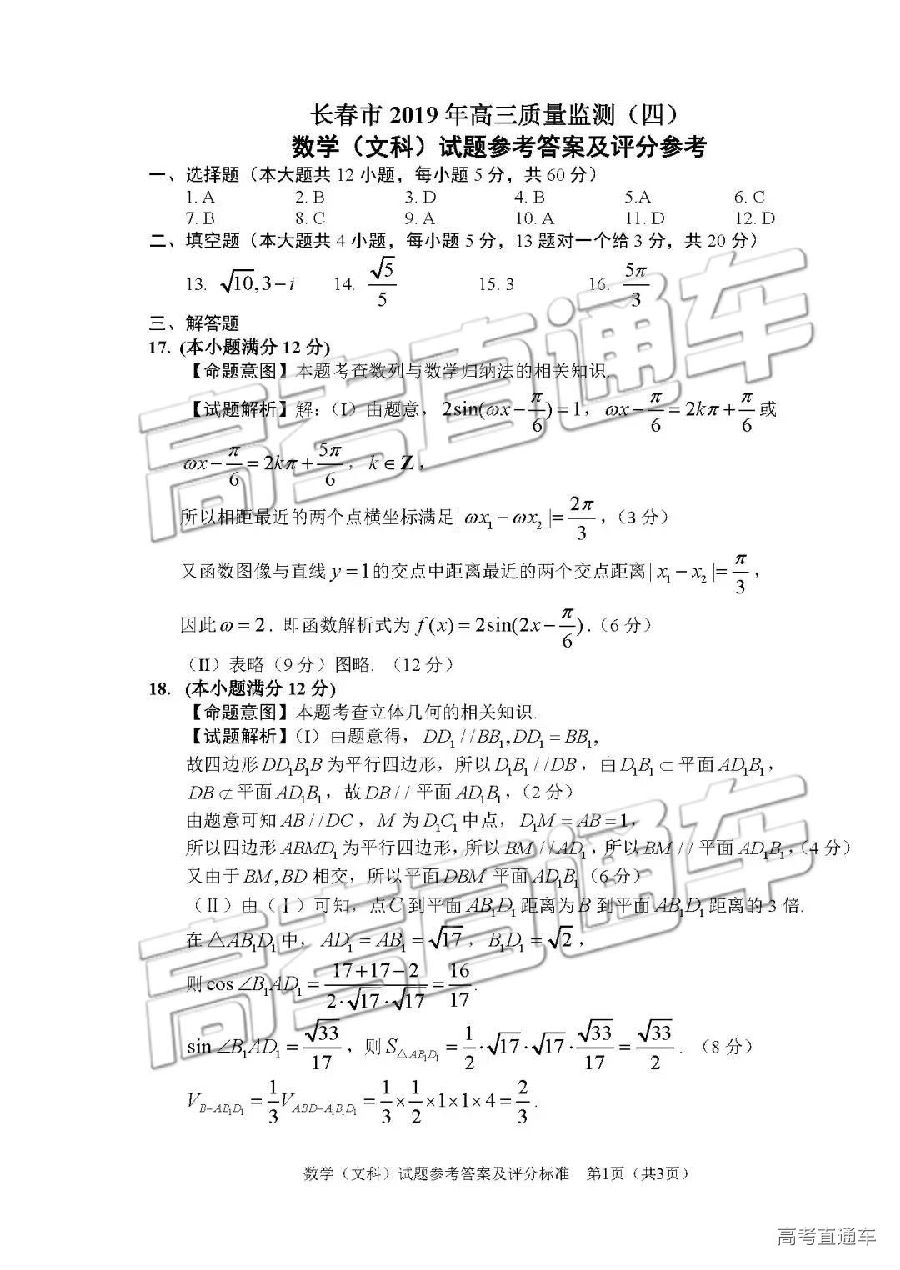 长春市 2019 年高三质量监测（四）
数学（文科）试题参考答案及评分参考
一、选择题（本大题共 12 小题，每小题 5 分，共 60 分）
1. A 2. B 3. D 4. B 5.A 6. C
7. B 8. C 9. A 10. A 11. D 12. D
二、填空题（本大题共 4 小题，每小题 5 分，13 题对一个给 3 分，共 20 分）
13. √10,3−i 14. √5/5 15. 3 16. 5π/3
三、解答题
17. (本小题满分 12 分)
【命题意图】本题考查数列与数学归纳法的相关知识.
【试题解析】解：(Ⅰ) 由题意，2sin(ωx−π/6)=1，ωx−π/6=2kπ+π/6或
ωx−π/6=2kπ+5π/6，k∈Z，
所以相距最近的两个点横坐标满足 ωx₁−ωx₂|=2π/3，(3 分)
又函数图像与直线 y=1的交点中距离最近的两个交点距离|x₁−x₂|=π/3，
因此ω=2. 即函数解析式为 f(x)=2sin(2x−π/6).（6 分）
（Ⅱ）表略（9 分）图略.（12 分）
18. (本小题满分 12 分)
【命题意图】本题考查立体几何的相关知识.
【试题解析】(Ⅰ) 由题意得，DD₁//BB₁,DD₁=BB₁,
故四边形DD₁B₁B为平行四边形，所以D₁B₁//DB，由D₁B₁⊂平面AD₁B₁，
DB⊄平面AD₁B₁，故DB//平面AD₁B₁，（2 分）
由题意可知AB//DC，M 为D₁C₁中点，D₁M=AB=1，
所以四边形ABMD₁为平行四边形，所以BM//AD₁，所以BM//平面AD₁B₁，（4 分）
又由于BM,BD相交，所以平面DBM 平面AD₁B₁（6 分）
（Ⅱ）由（Ⅰ）可知，点C到平面AB₁D₁距离为B到平面AB₁D₁距离的 3 倍.
在△AB₁D₁中，AD₁=AB₁=√17，B₁D₁=√2，
则cos∠B₁AD₁=(17+17−2)/(2·√17·√17)=16/17.
sin∠B₁AD₁=√33/17，则S△AB₁D₁=1/2·√17·√17·√33/17=√33/2.（8 分）
V_{B−AB₁D₁}=1/3V_{ABD−A₁B₁D₁}=1/3×1/2×1×1×4=2/3.
数学（文科）试题参考答案及评分标准 第1页（共3页）
高考直通车
高考直通车
高考直通车